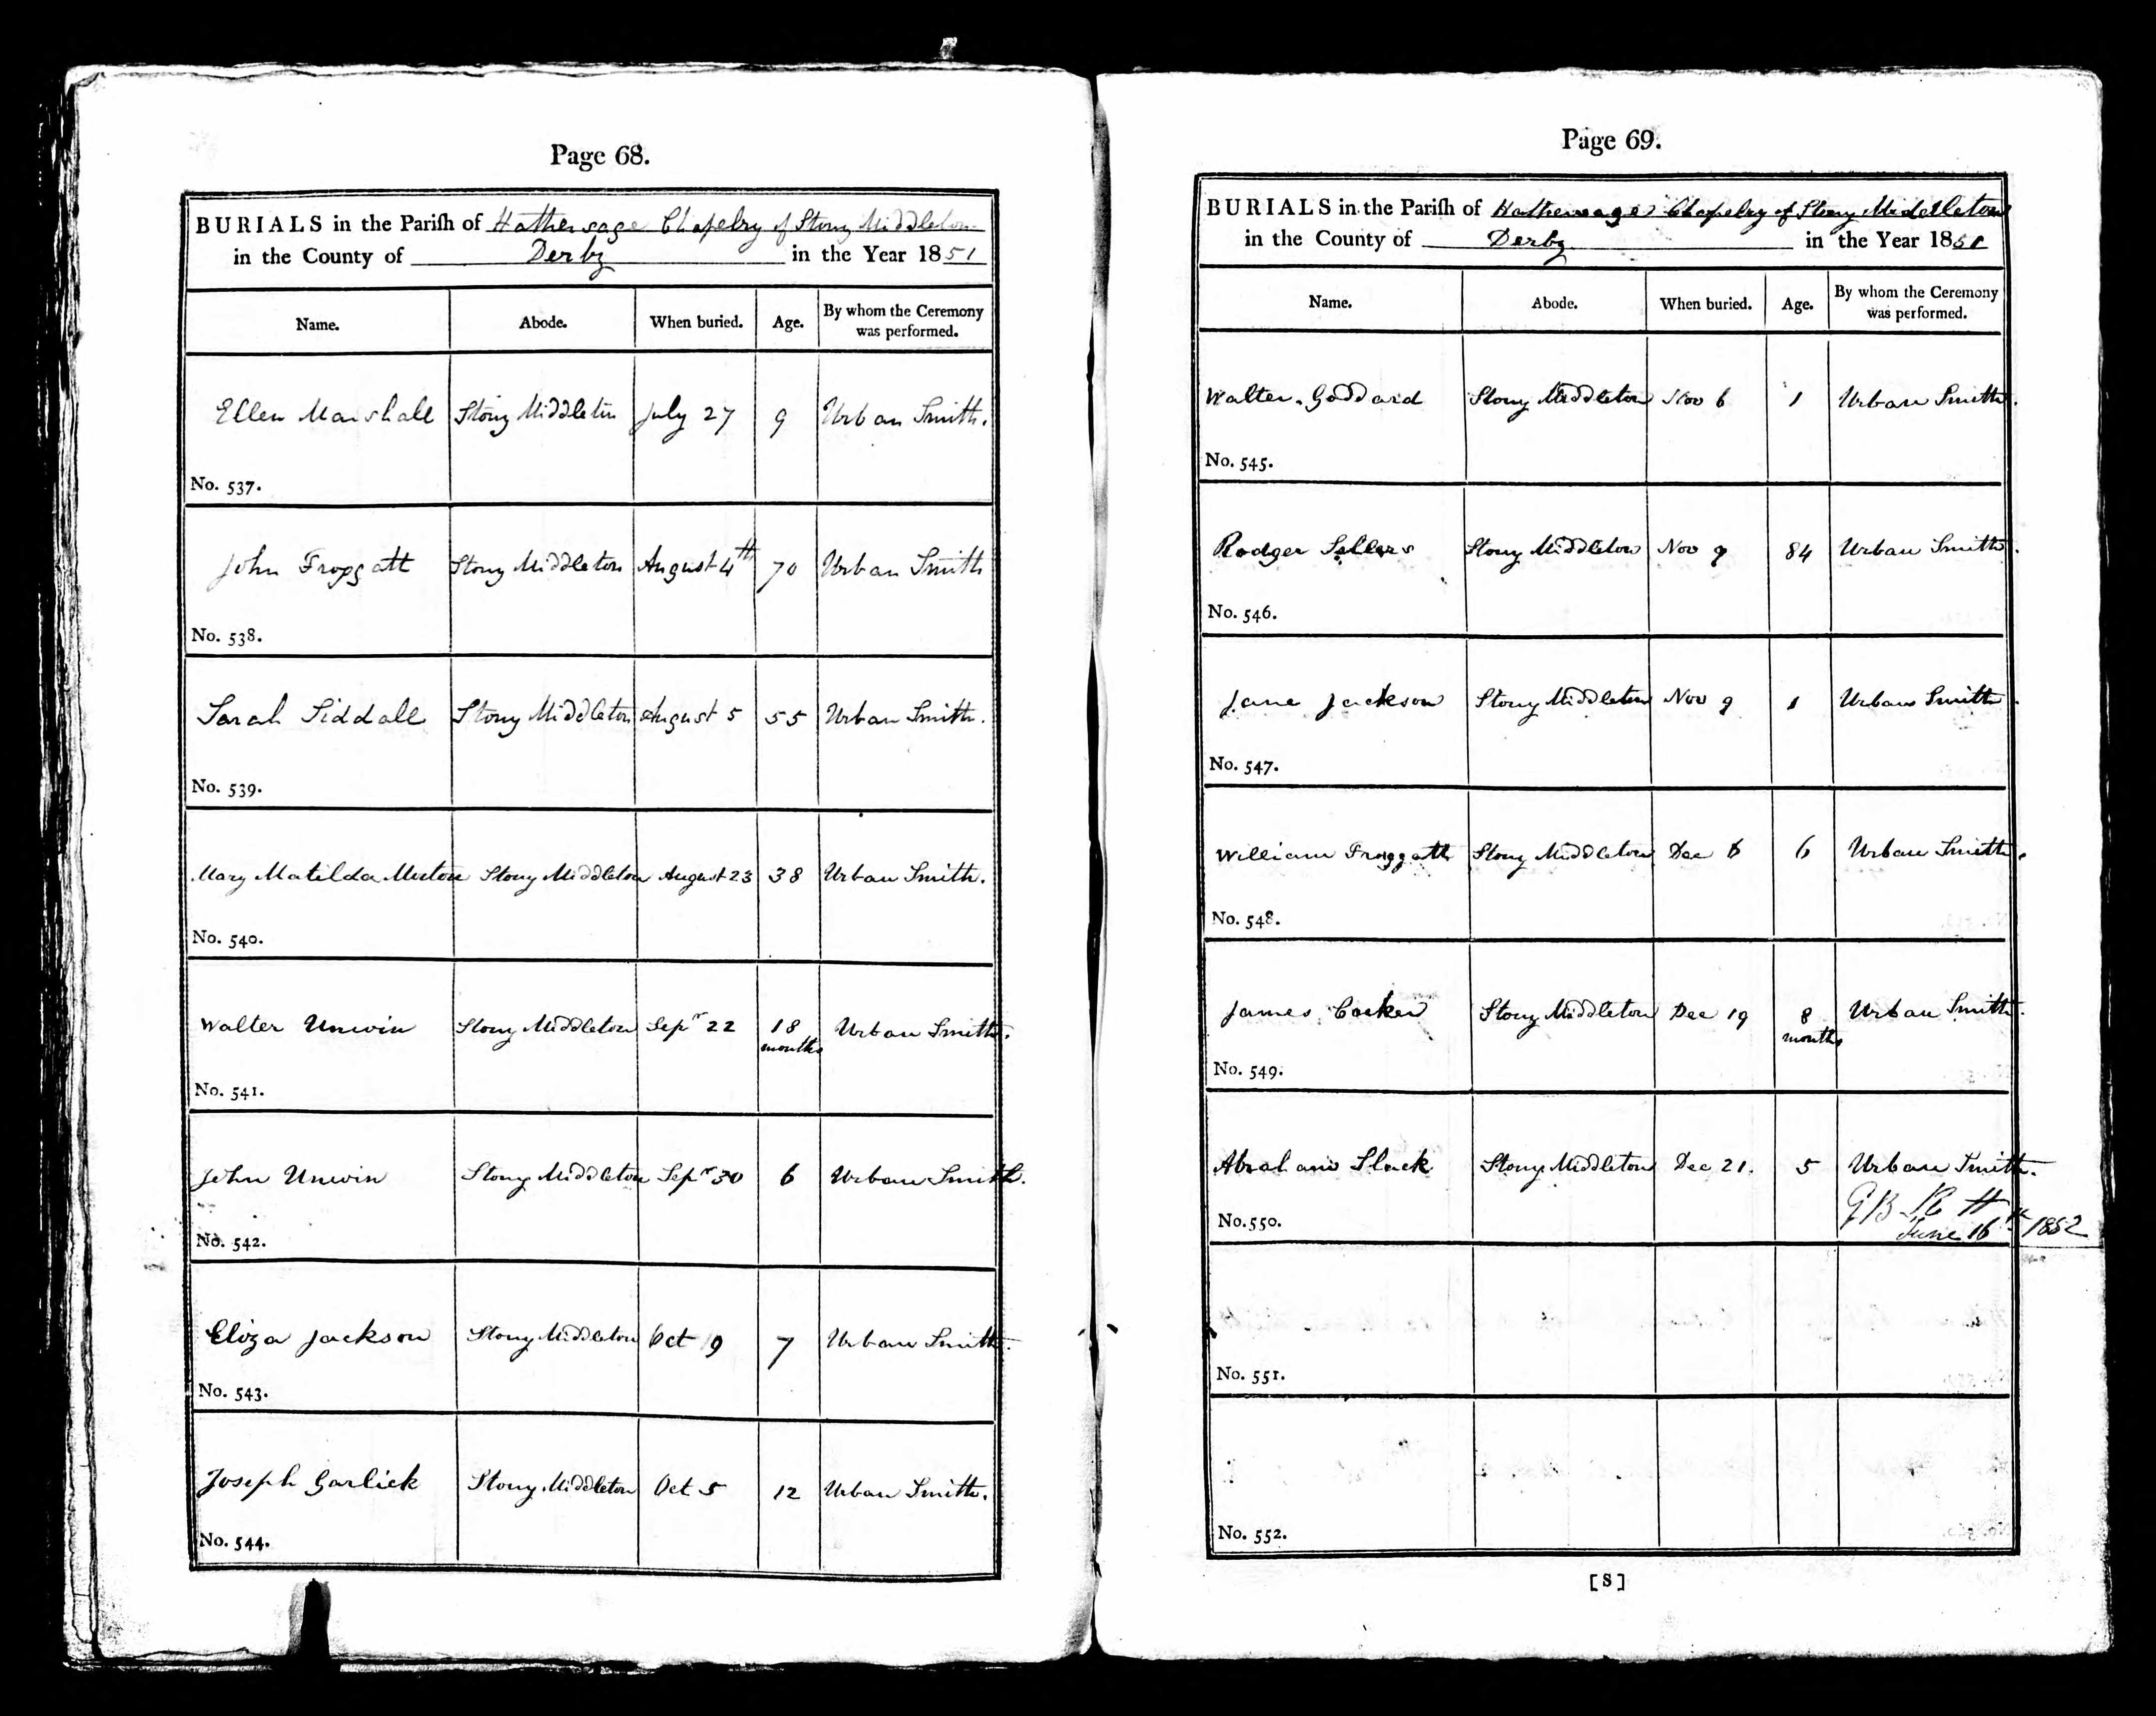 Page 68.
BURIALS in the Parish of Hathersage Chapelry of Stony Middleton
in the County of Derby in the Year 1851
Name. Abode. When buried. Age. By whom the Ceremony was performed.
Ellen Marshall Stony Middleton July 27 9 Urban Smith.
No. 537.
John Froggatt Stony Middleton August 4th 70 Urban Smith
No. 538.
Sarah Siddall Stony Middleton August 5 55 Urban Smith.
No. 539.
Mary Matilda Stony Middleton August 23 38 Urban Smith.
No. 540.
Walter Unwin Stony Middleton Sepr 22 18 months Urban Smith.
No. 541.
John Unwin Stony Middleton Sepr 30 6 Urban Smith.
No. 542.
Eliza Jackson Stony Middleton Oct 9 7 Urban Smith.
No. 543.
Joseph Garlick Stony Middleton Oct 5 12 Urban Smith.
No. 544.
Page 69.
BURIALS in the Parish of Hathersage Chapelry of Stony Middleton
in the County of Derby in the Year 1851
Name. Abode. When buried. Age. By whom the Ceremony was performed.
Walter Goddard Stony Middleton Nov 6 1 Urban Smith.
No. 545.
Rodger Sellers Stony Middleton Nov 9 84 Urban Smith.
No. 546.
Jane Jackson Stony Middleton Nov 9 1 Urban Smith.
No. 547.
William Froggatt Stony Middleton Dec 6 6 Urban Smith.
No. 548.
James Cocker Stony Middleton Dec 19 8 months Urban Smith.
No. 549.
Abraham Slack Stony Middleton Dec 21. 5 Urban Smith.
No. 550.
June 16th 1852
No. 551.
No. 552.
[S]